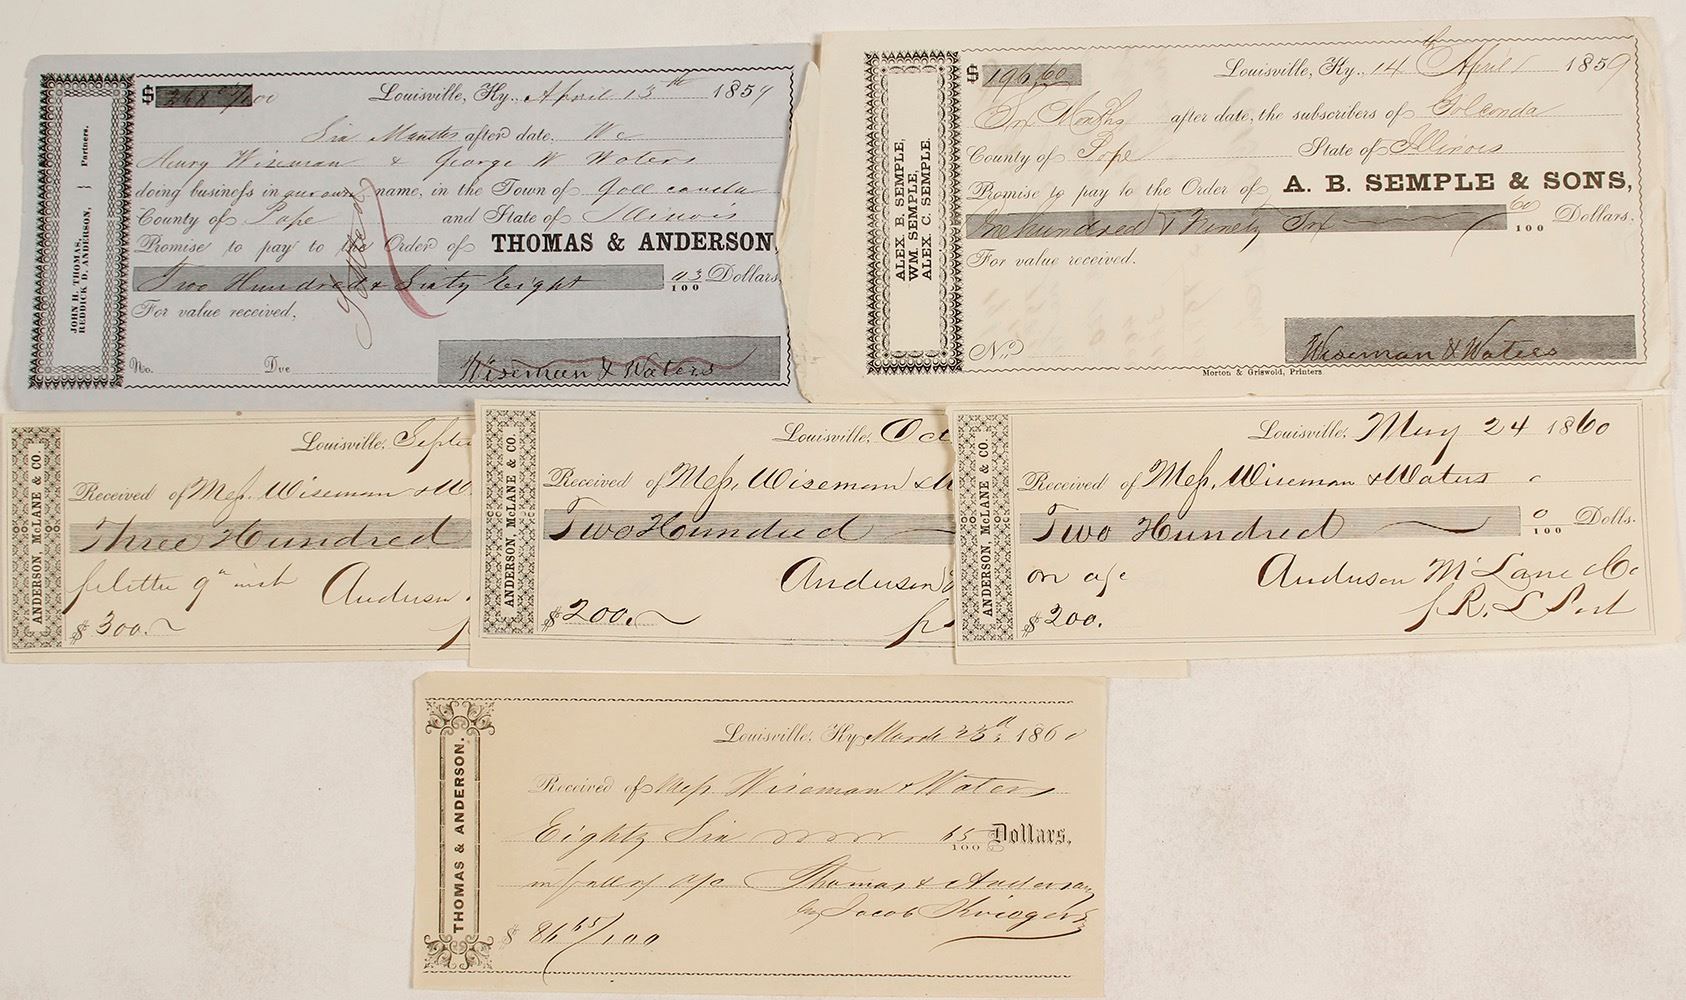 JOHN H. THOMAS,
REDDICK D. ANDERSON, } Partners.
$ 268 03/100 Louisville, Ky., April 13th 1859
Six Months after date We
Henry Wiseman & George W Waters
doing business in our own name, in the Town of Gollconda
County of Pope and State of Illinois
Promise to pay to the Order of THOMAS & ANDERSON,
Two Hundred & Sixty Eight 03/100 Dollars
For value received,
No. Due Wiseman & Waters
ALEX B. SEMPLE,
WM. SEMPLE,
ALEX C. SEMPLE.
$ 196.60 Louisville, Ky., 14th April 1859
Six Months after date, the subscribers of Golconda
County of Pope State of Illinois
Promise to pay to the Order of A. B. SEMPLE & SONS,
One hundred & Ninety Six 60/100 Dollars.
For value received.
No. Wiseman & Waters
Morton & Griswold, Printers
ANDERSON, McLANE & CO.
Louisville, Septe
Received of Mess. Wiseman & W
Three Hundred
letter 9th inst Anderson
$ 300.
ANDERSON, McLANE & CO.
Louisville, Oct
Received of Mess. Wiseman & W
Two Hundred
Anderson
$ 200.
ANDERSON, McLANE & CO.
Louisville, May 24 1860
Received of Mess. Wiseman & Waters
Two Hundred 0/100 Dolls.
on a/c Anderson McLane & Co
$ 200. p R. L Post
THOMAS & ANDERSON.
Louisville, Ky March 23d, 1860
Received of Mess Wiseman & Waters
Eighty Six 65/100 Dollars,
in full of a/c Thomas & Anderson
by Jacob Krieger
$ 86 65/100